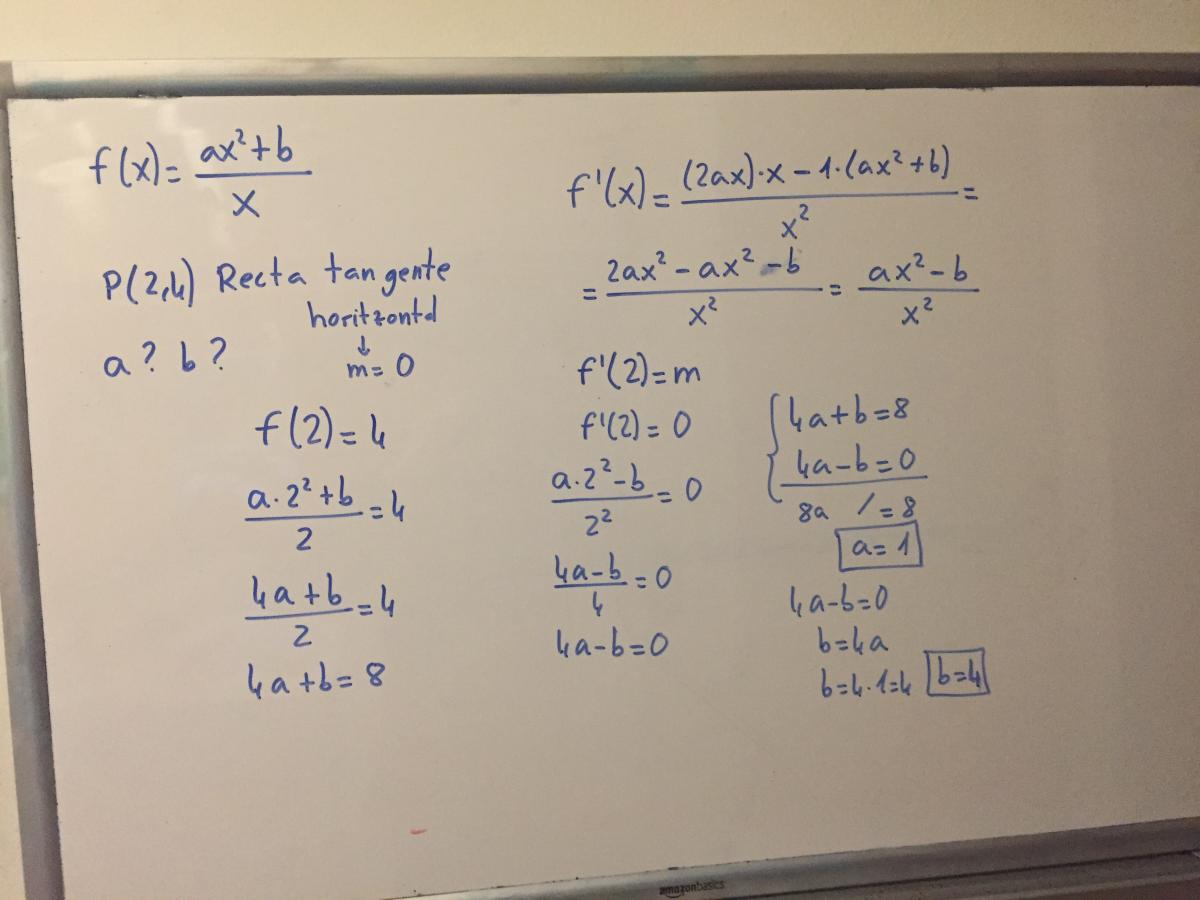 f(x) = (ax²+b)/x
P(2,4) Recta tangente
horitzontal
↓
a? b? m=0
f(2)=4
(a·2²+b)/2 = 4
(4a+b)/2 = 4
4a+b=8
f'(x) = ((2ax)·x−1·(ax²+b))/x² =
= (2ax²−ax²−b)/x² = (ax²−b)/x²
f'(2)=m
f'(2)=0
(a·2²−b)/2² = 0
(4a−b)/4 = 0
4a−b=0
{4a+b=8
4a−b=0
8a / = 8
a=1
4a−b=0
b=4a
b=4·1=4 b=4
amazonbasics